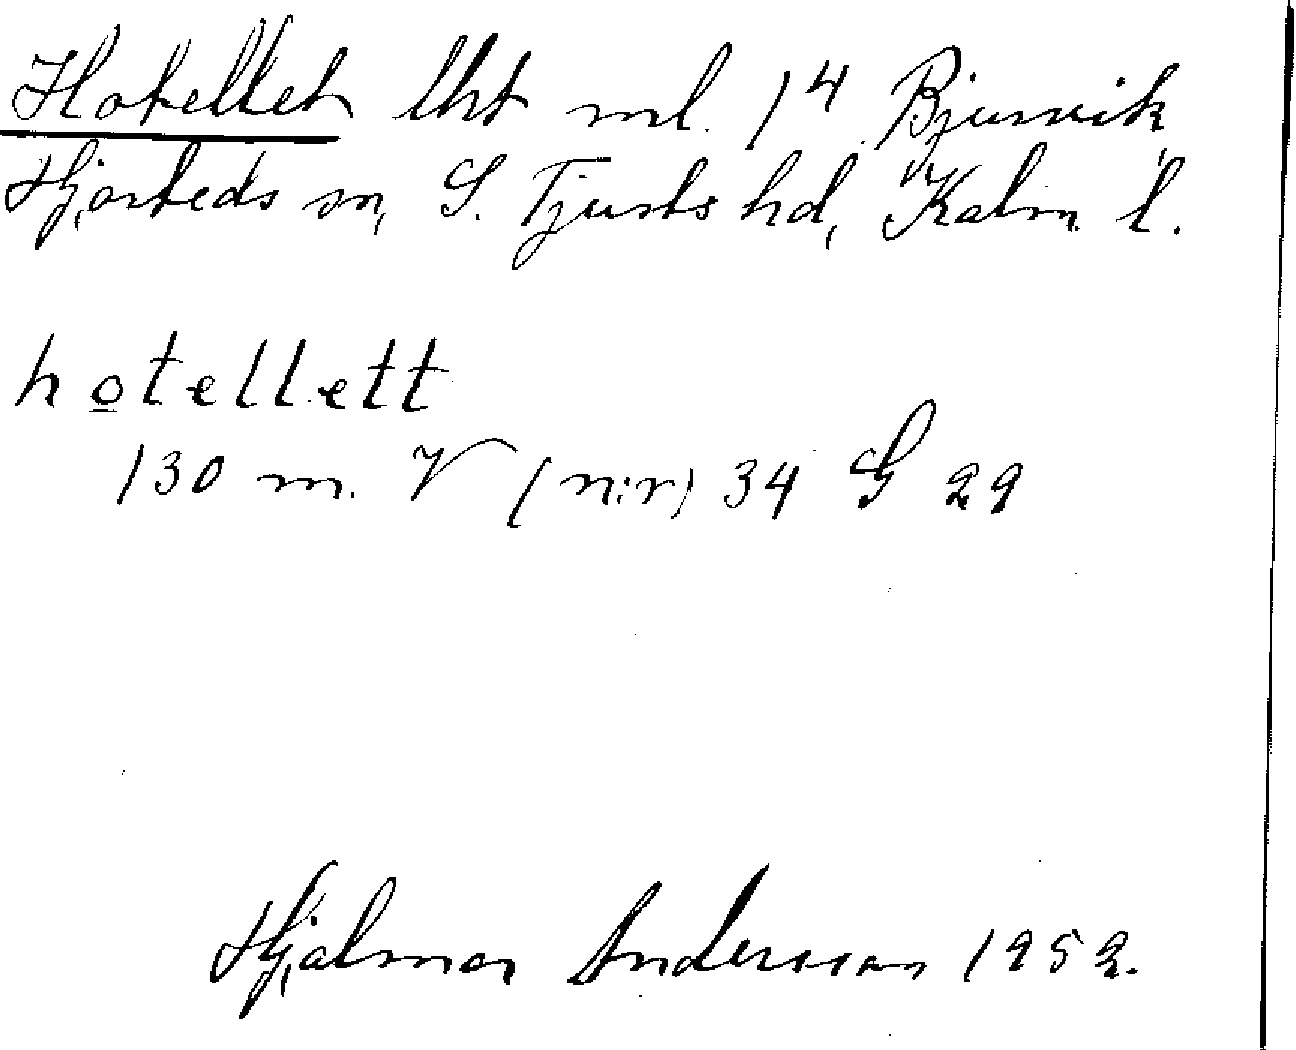 Hotellet lht ml. 1⁴ Bjursvik,
Hjorteds sn, S. Tjusts hd, Kalm. l.
hotellett
130 m. V (n:r) 34 G 29
Hjalmar Andersson 1952.